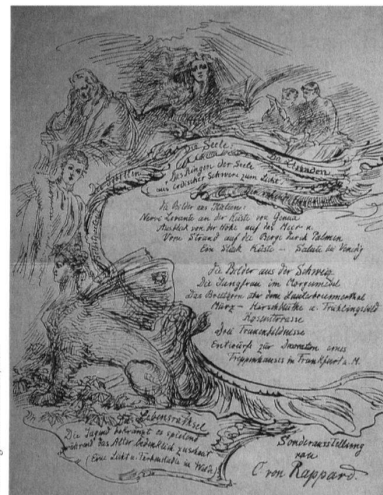 Die Seele.
Das Ringen der Seele
aus irdischer Schwere zum Licht.
Die Bilder aus Italien:
Nervi Levante an der Küste von Genua
Ausblick von der Höhe auf das Meer u.
Vom Strand auf die Berge durch Palmen
Ein Stück Küste
in Venedig
Die Bilder aus der Schweiz
Die Jungfrau im Morgennebel
Das Breithorn über dem Lauterbrunnenthal
März- Harschblüthe u. Frühlingsfeld
Drei Frauenbildnisse
Entwürfe zur Decoration eines
Treppenhauses in Frankfurt a. M.
Lebensrätsel
Die Jugend bekränzt es spielend
während das Alter bedenklich zuschaut
Sonderausstellung
von
C. von Rappard.